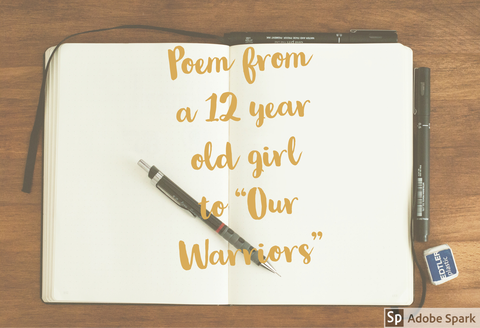 Poem from
a 12 year
old girl
to “Our
Warriors”
EDTLER
plastic
Sp Adobe Spark